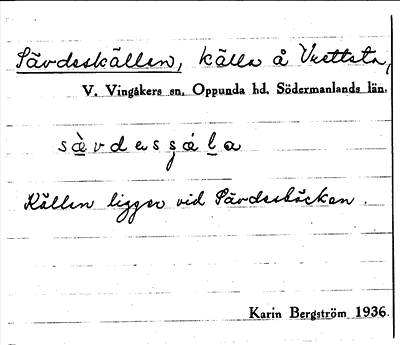 Sävdeskällen, källa å Vrettsta,
V. Vingåkers sn. Oppunda hd. Södermanlands län.
Källen ligger vid Sävdesbäcken.
Karin Bergström 1936.